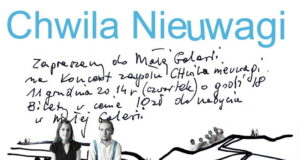 Chwila Nieuwagi
Zapraszamy do Małej Galerii
na koncert zespołu Chwila nieuwagi
11 grudnia 2014 r (czwartek) o godz 18
Bilety w cenie 10 zł do nabycia
w Małej Galerii